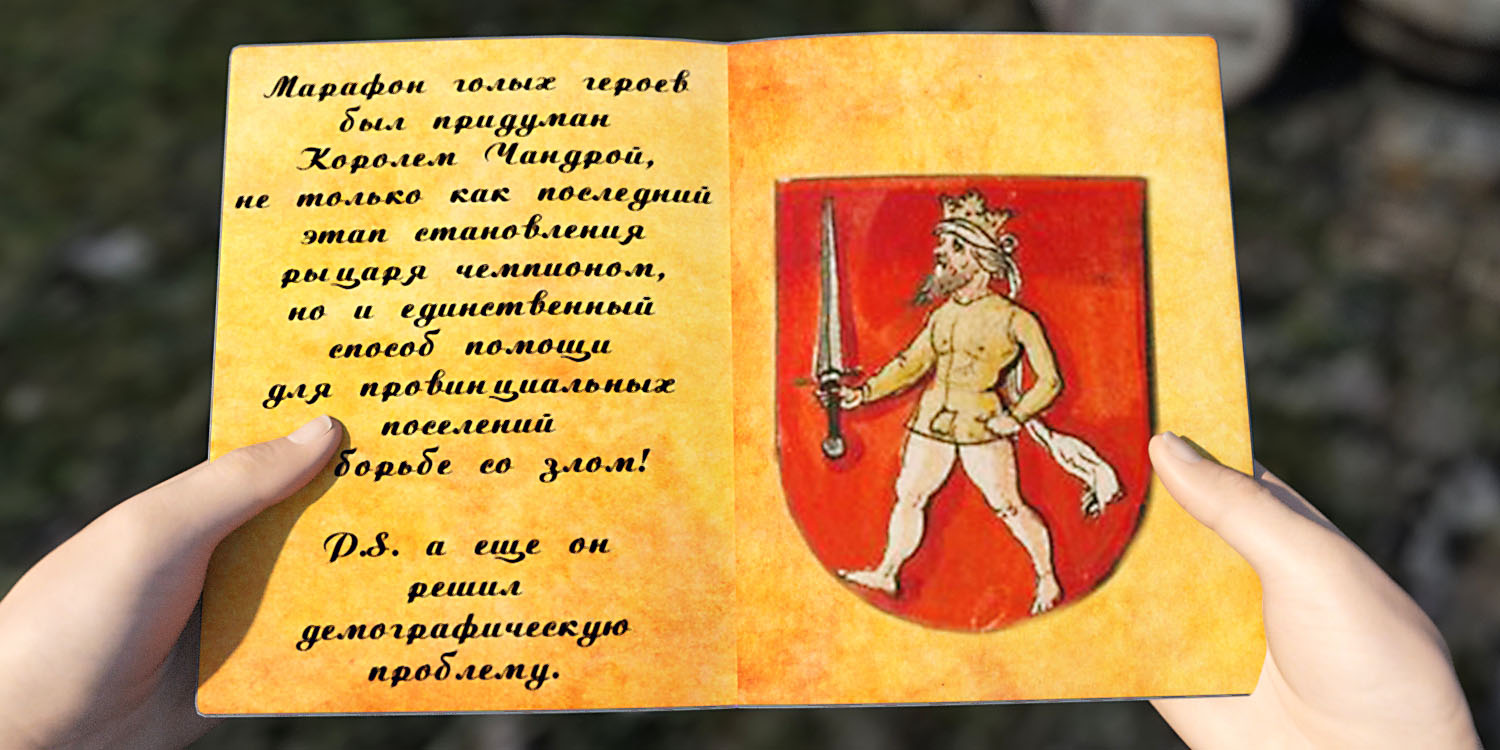 Марафон голых героев
был придуман
Королем Чандрой,
не только как последний
этап становления
рыцаря чемпионом,
но и единственный
способ помощи
для провинциальных
поселений
борьбе со злом!
P.S. а еще он
решил
демографическую
проблему.